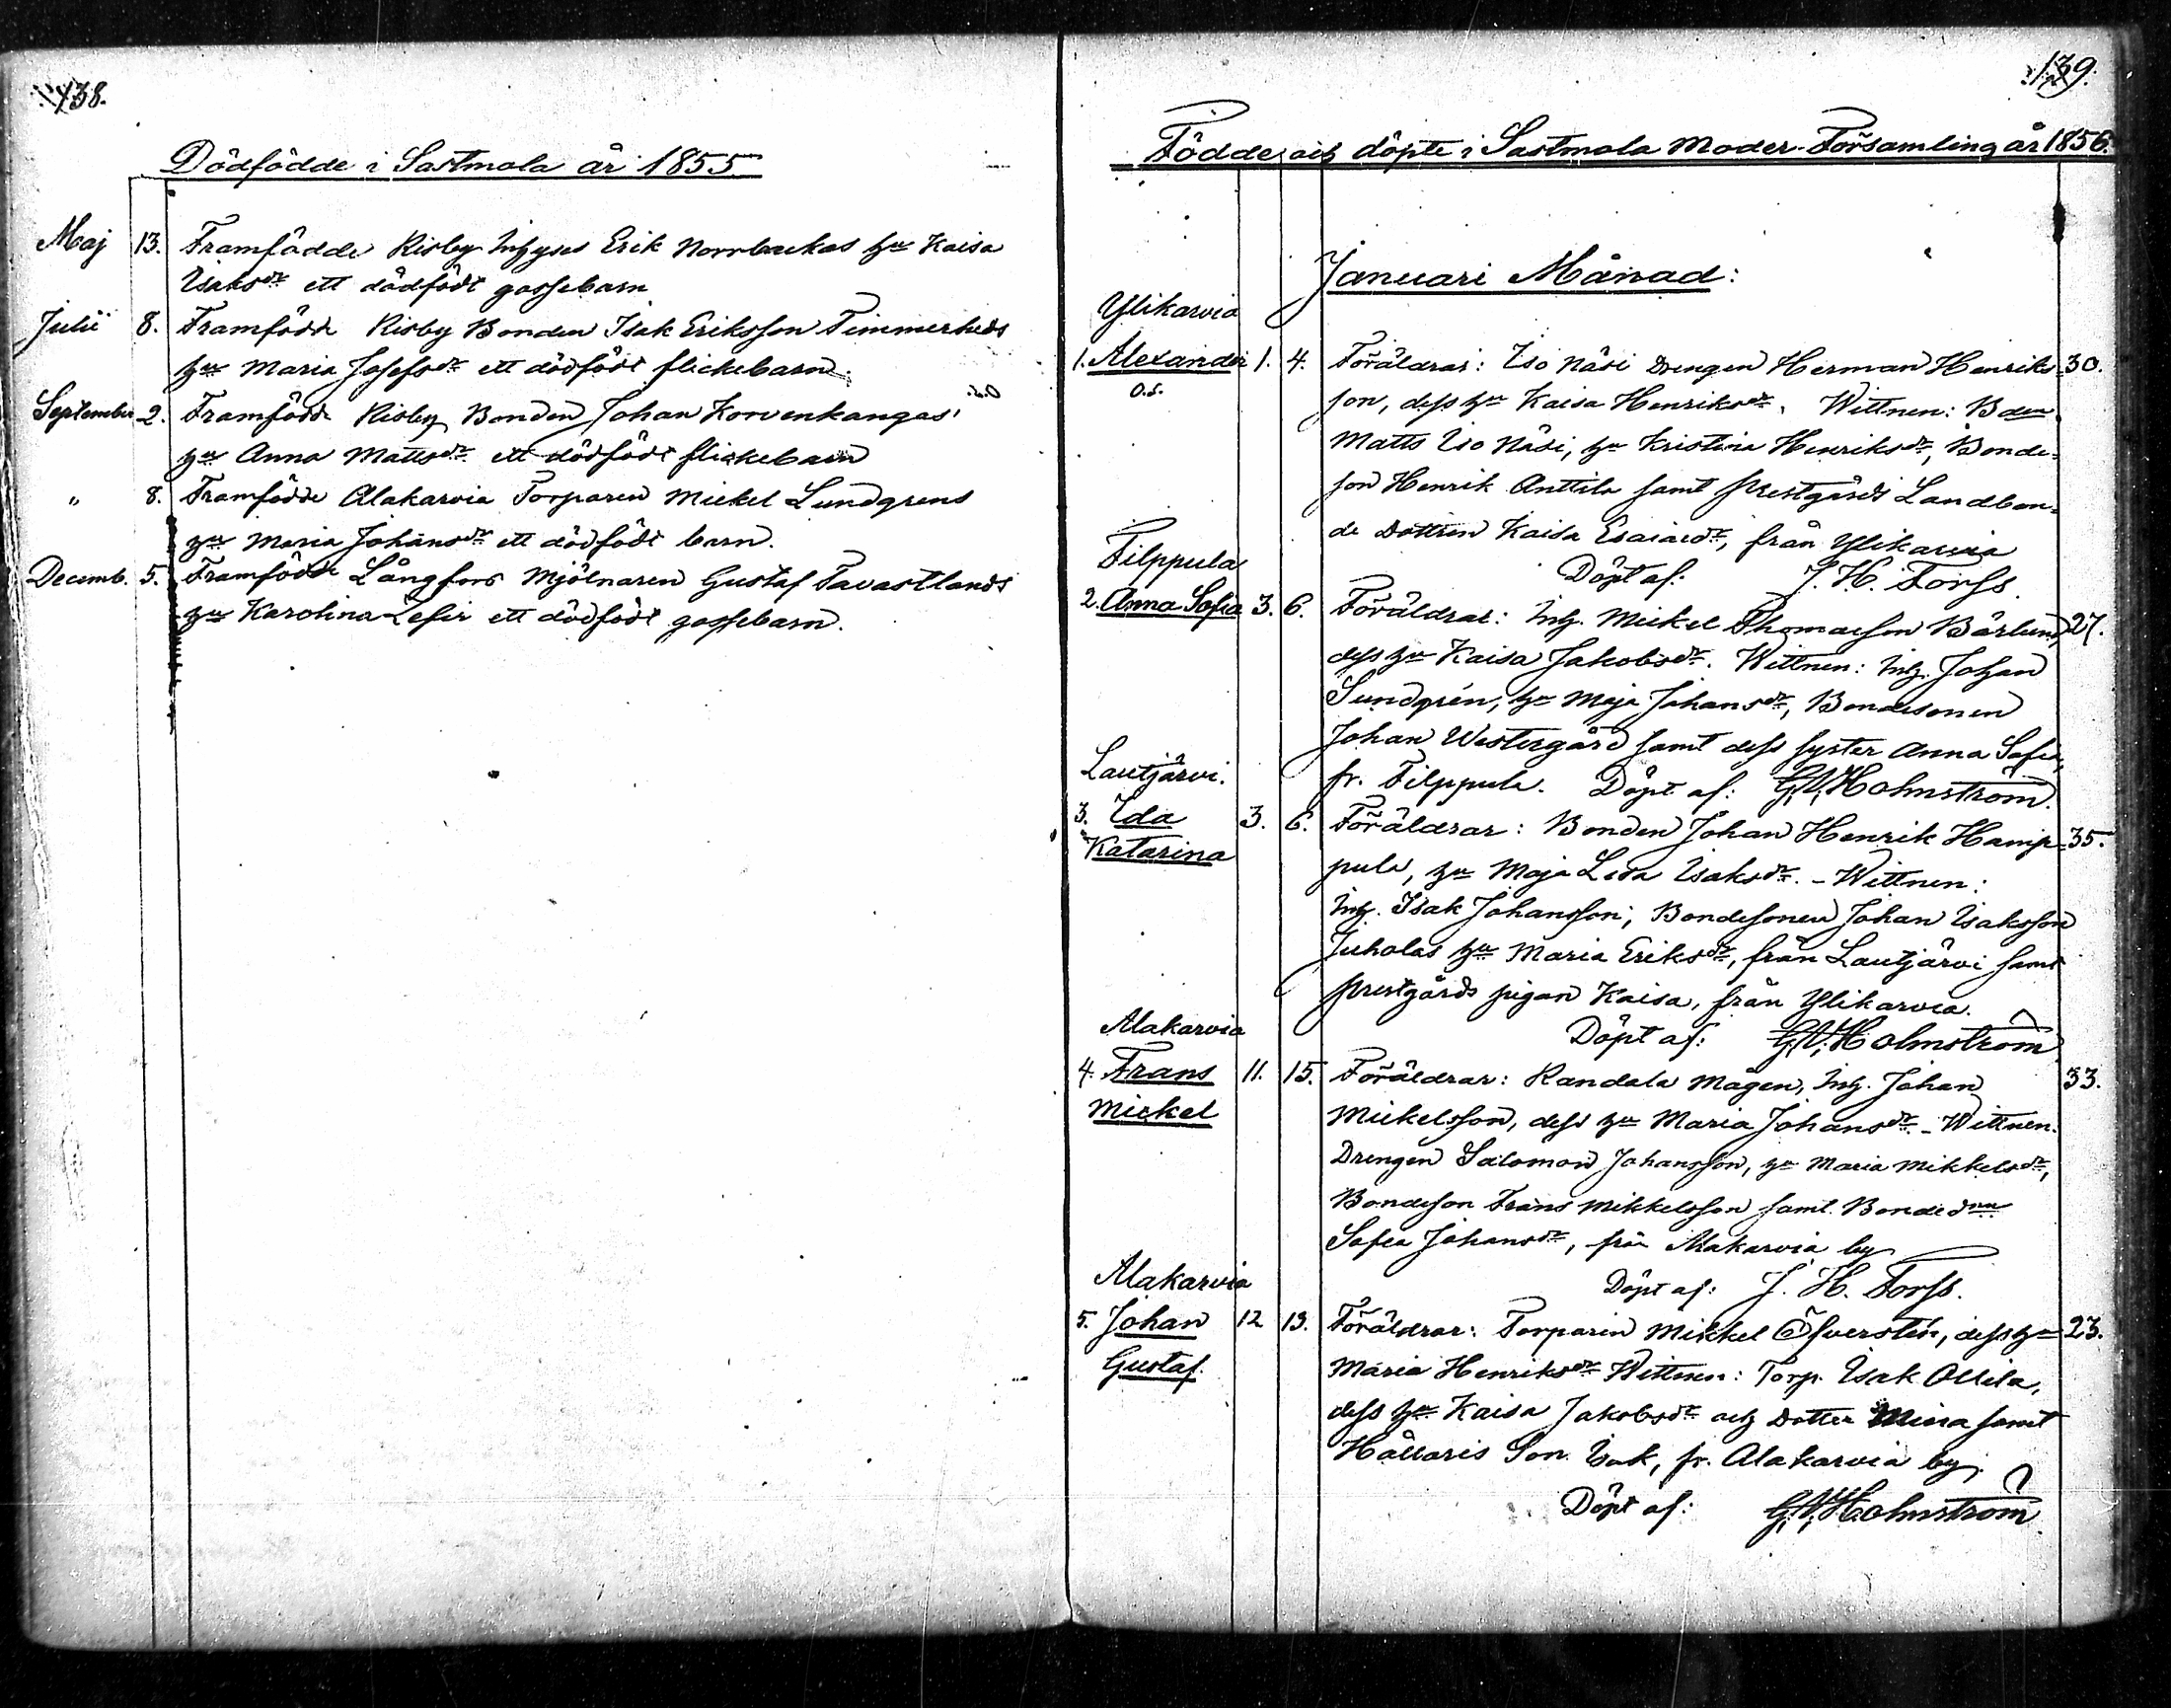 138.
Dödfödde i Sastmola år 1855
Maj 13. Framfödde Risby Inhyses Erik Norrbackas hu Kaisa
Isaksdr ett dödfödt gossebarn
Julii 8. Framfödde Risby Bonden Isak Eriksson Timmerheds
hu Maria Josefsdr ett dödfödt flickebarn.
September 2. Framfödde Risby Bonden Johan Korvenkangas
hu Anna Mattsdr ett dödfödt flickebarn
" 8. Framfödde Alakarvia Torparen Mickel Lundgrens
hu Maria Johansdr ett dödfödt barn.
Decemb. 5. Framfödde Långfors Mjölnaren Gustaf Tavastlands
hu Karolina Lefir ett dödfödt gossebarn.
139.
Födde och döpte i Sastmola Moder-Församling år 1856.
Januari Månad:
Ylikarvia
1. Alexander 1. 4. Föräldrar: Iso Näsi Drengen Herman Henriks= 30.
o.ä.
son, dess hu Kaisa Henriksdr. Wittnen: Bden
Matts Iso Näsi, hu Kristina Henriksdr, Bonde=
son Henrik Anttila samt Prestgårds Landbon=
de Dottren Kaisa Esaiaedr, från Ylikarvia
Döpt af: J. H. Forss.
Filppula
2. Anna Sofia 3. 6. Föräldrar: Inh. Mickel Thomasson Bärlund, 27.
dess hu Kaisa Jakobsdr. Wittnen: Inh. Johan
Sundgrén, hu Maja Johansdr, Bondesonen
Johan Westergård samt dess syster Anna Sofia,
fr. Filppula. Döpt af: G.W. Holmström.
Lautjärvi.
3. Ida 3. 6. Föräldrar: Bonden Johan Henrik Hamp= 35.
Katarina
pula, hu Maja Lisa Isaksdr. - Wittnen:
Inh. Isak Johansson, Bondesonen Johan Isaksson
Juholas hu Maria Eriksdr, från Lautjärvi samt
Prestgårds pigan Kaisa, från Ylikarvia.
Döpt af: G.W. Holmström
Alakarvia
4. Frans 11. 15. Föräldrar: Randala Mågen, Inh. Johan 33.
Mickel
Mickelsson, dess hu Maria Johansdr. - Wittnen:
Drengen Salomon Johansson, hu Maria Mikkelsdr,
Bondeson Frans Mikkelsson samt Bonded
Sofia Johansdr, från Alakarvia by
Döpt af: J. H. Forss.
Alakarvia
5. Johan 12 13. Föräldrar: Torparen Mikkel Öfverstén, dess hu 23.
Gustaf.
Maria Henriksdr Wittnen: Torp. Isak Ollila,
dess hu Kaisa Jakobsdr och Dotter Miina samt
Hållaris Son Isak, fr. Alakarvia by.
Döpt af: G.W. Holmström